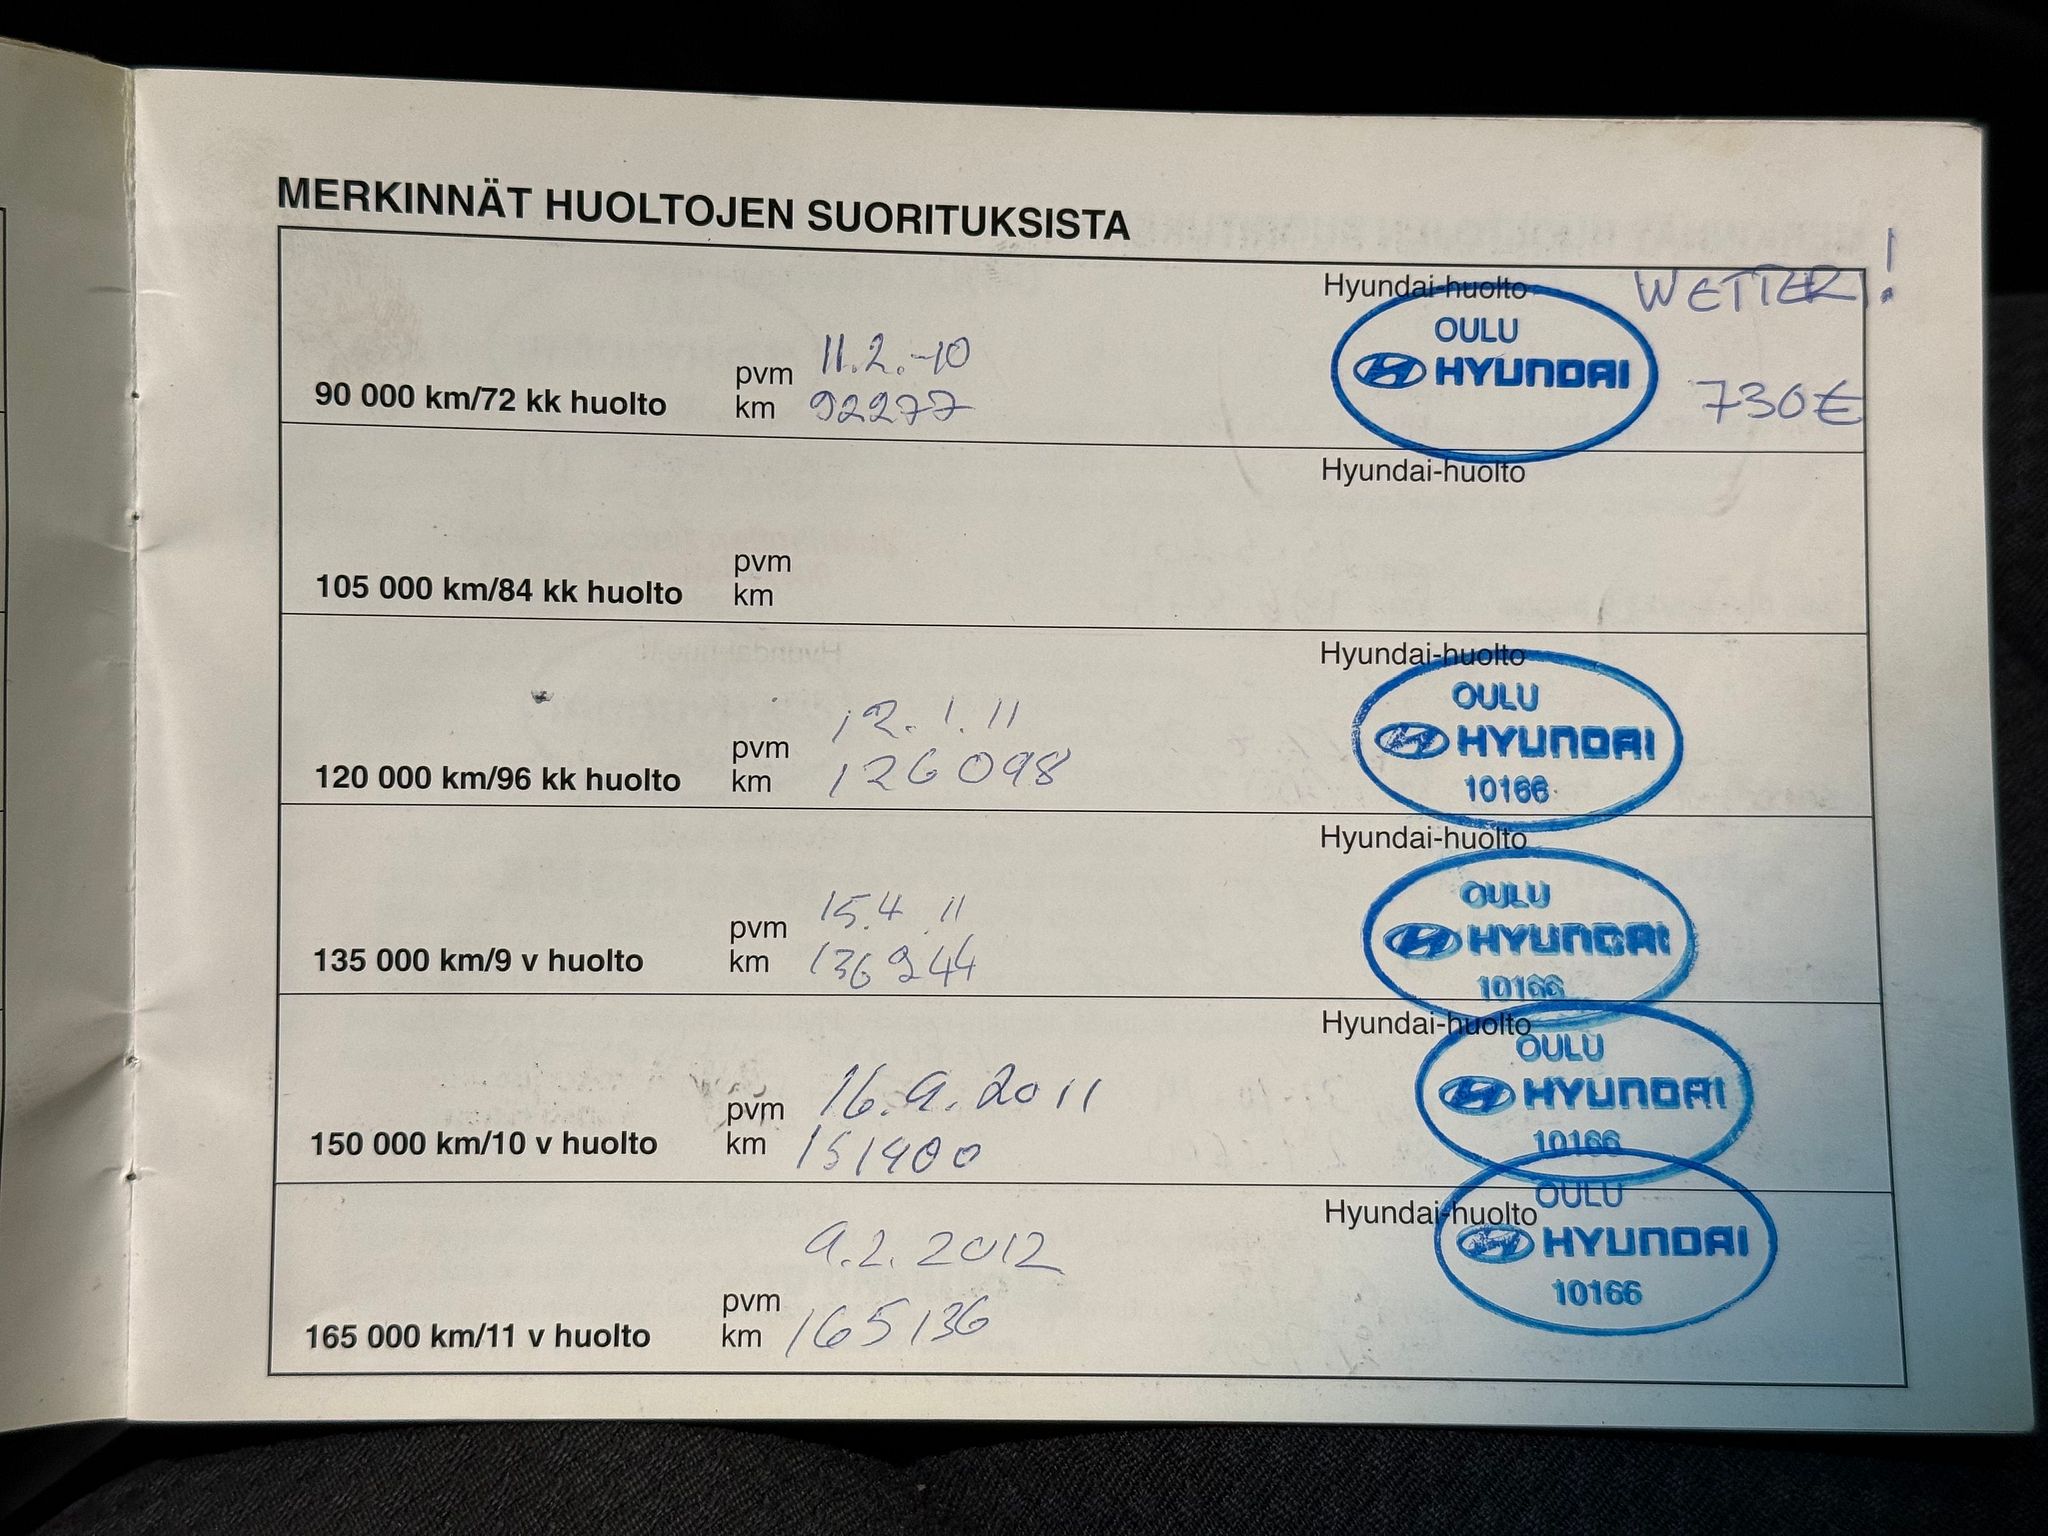 MERKINNÄT HUOLTOJEN SUORITUKSISTA
Hyundai-huolto WETTER!
OULU
HYUNDAI 730€
pvm 11.2.-10
90 000 km/72 kk huolto km 92277
Hyundai-huolto
pvm
105 000 km/84 kk huolto km
Hyundai-huolto
OULU
HYUNDAI
10166
pvm 12.1.11
120 000 km/96 kk huolto km 126098
Hyundai-huolto
OULU
HYUNDAI
10166
pvm 15.4.11
135 000 km/9 v huolto km 136944
Hyundai-huolto
OULU
HYUNDAI
10166
pvm 16.9.2011
150 000 km/10 v huolto km 151400
Hyundai-huolto
OULU
HYUNDAI
10166
pvm 9.2.2012
165 000 km/11 v huolto km 165136